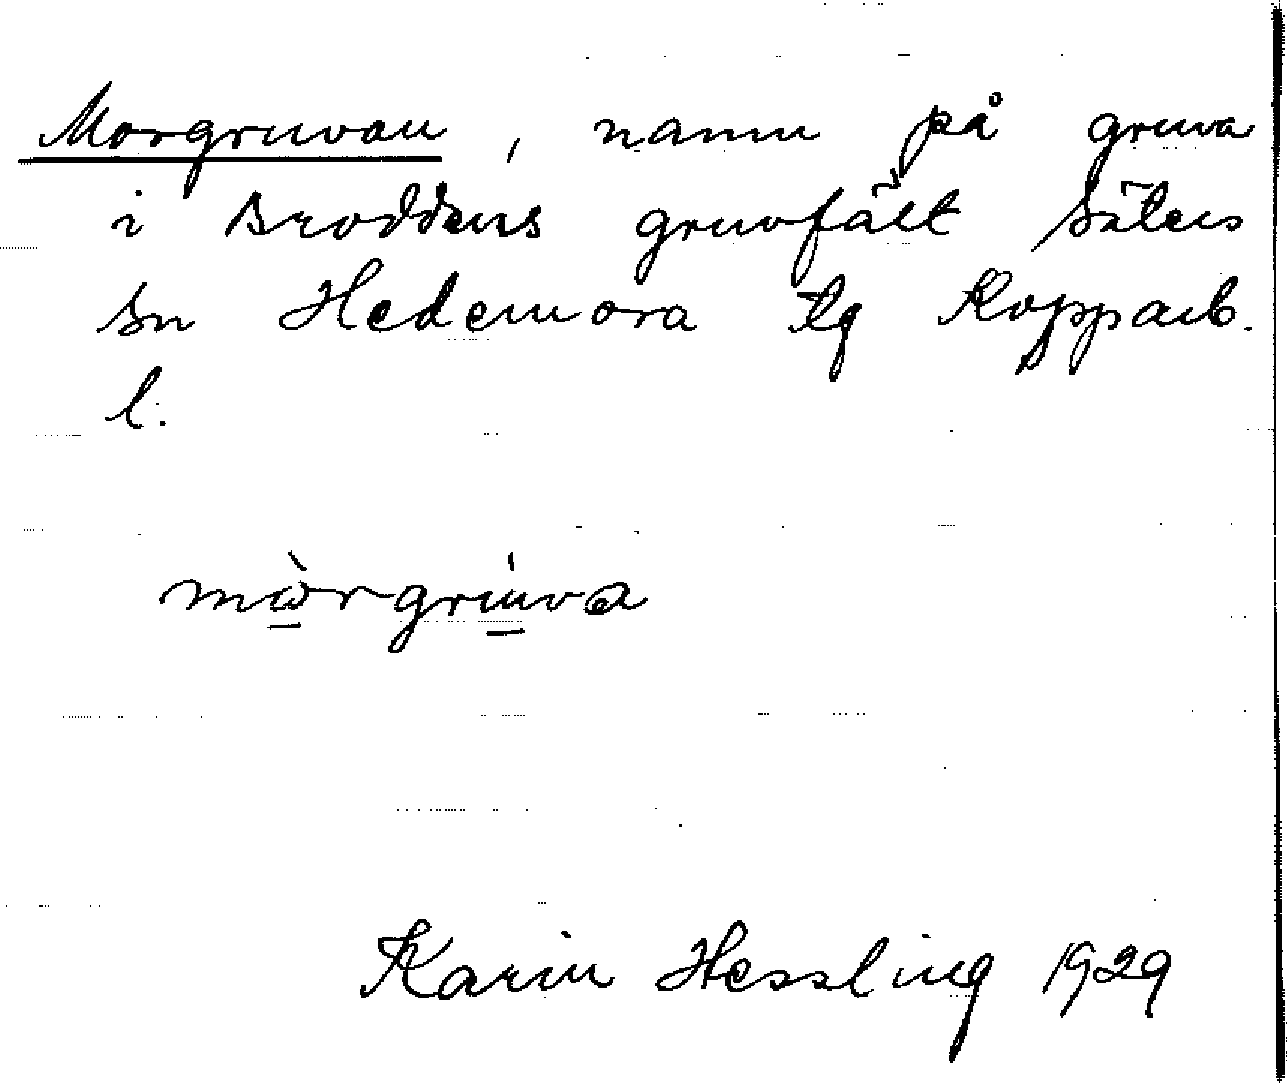 Morgruvan, namn på gruva
i Broddens gruvfält Säters
sn Hedemora tg Kopparb.
l.
mὼrgrúva
Karin Hessling 1929